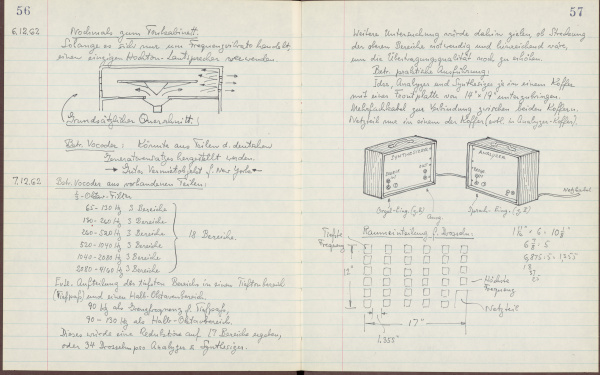 56
6.12.62 Nochmals zum Tonkabinett:
Solange es sich nur um Frequenzvibrato handelt,
einen einzigen Hochton-Lautsprecher verwenden.
Grundsätzlicher Querschnitt:
Betr. Vocoder: Könnte aus Teilen d. deutschen
Generatorsatzes hergestellt werden.
Gutes Vermietobjekt f. New York
7.12.62 Betr. Vocoder aus vorhandenen Teilen:
½-Oktav-Filter
65-130 Hz 3 Bereiche
130-260 Hz 3 Bereiche
260-520 Hz 3 Bereiche
520-1040 Hz 3 Bereiche
1040-2080 Hz 3 Bereiche
2080-4160 Hz 3 Bereiche
18 Bereiche.
Evtl. Aufteilung des tiefsten Bereichs in einen Tieftonbereich
(Tiefpass) und einen Halb-Oktavenbereich.
90 Hz als Grenzfrequenz f. Tiefpass,
90-130 Hz als Halb-Oktavbereich.
Dieses würde eine Reduktion auf 17 Bereiche ergeben,
oder 34 Drosseln pro Analyzer & Synthesizer.
57
Weitere Untersuchung würde dahin zielen ob Streckung
der oberen Bereiche notwendig und hinreichend wäre,
um die Übertragungsqualität noch zu erhöhen.
Betr. praktische Ausführung:
Idee, Analyzer und Synthesizer je in einem Koffer
mit einer Frontplatte von 14" x 17" unterzubringen.
Mehrfachkabel zur Verbindung zwischen beiden Koffern.
Netzteil nur in einem der Koffer (evtl. in Analyzer-Koffer).
SYNTHESIZER
ANALYZER
Netzkabel
Ausg.
Sprach-Eing.
Raumeinteilung f. Drosseln:
Tiefste
Frequenz
12"
Höchste
Frequenz
Netzteil
17"
1,355"